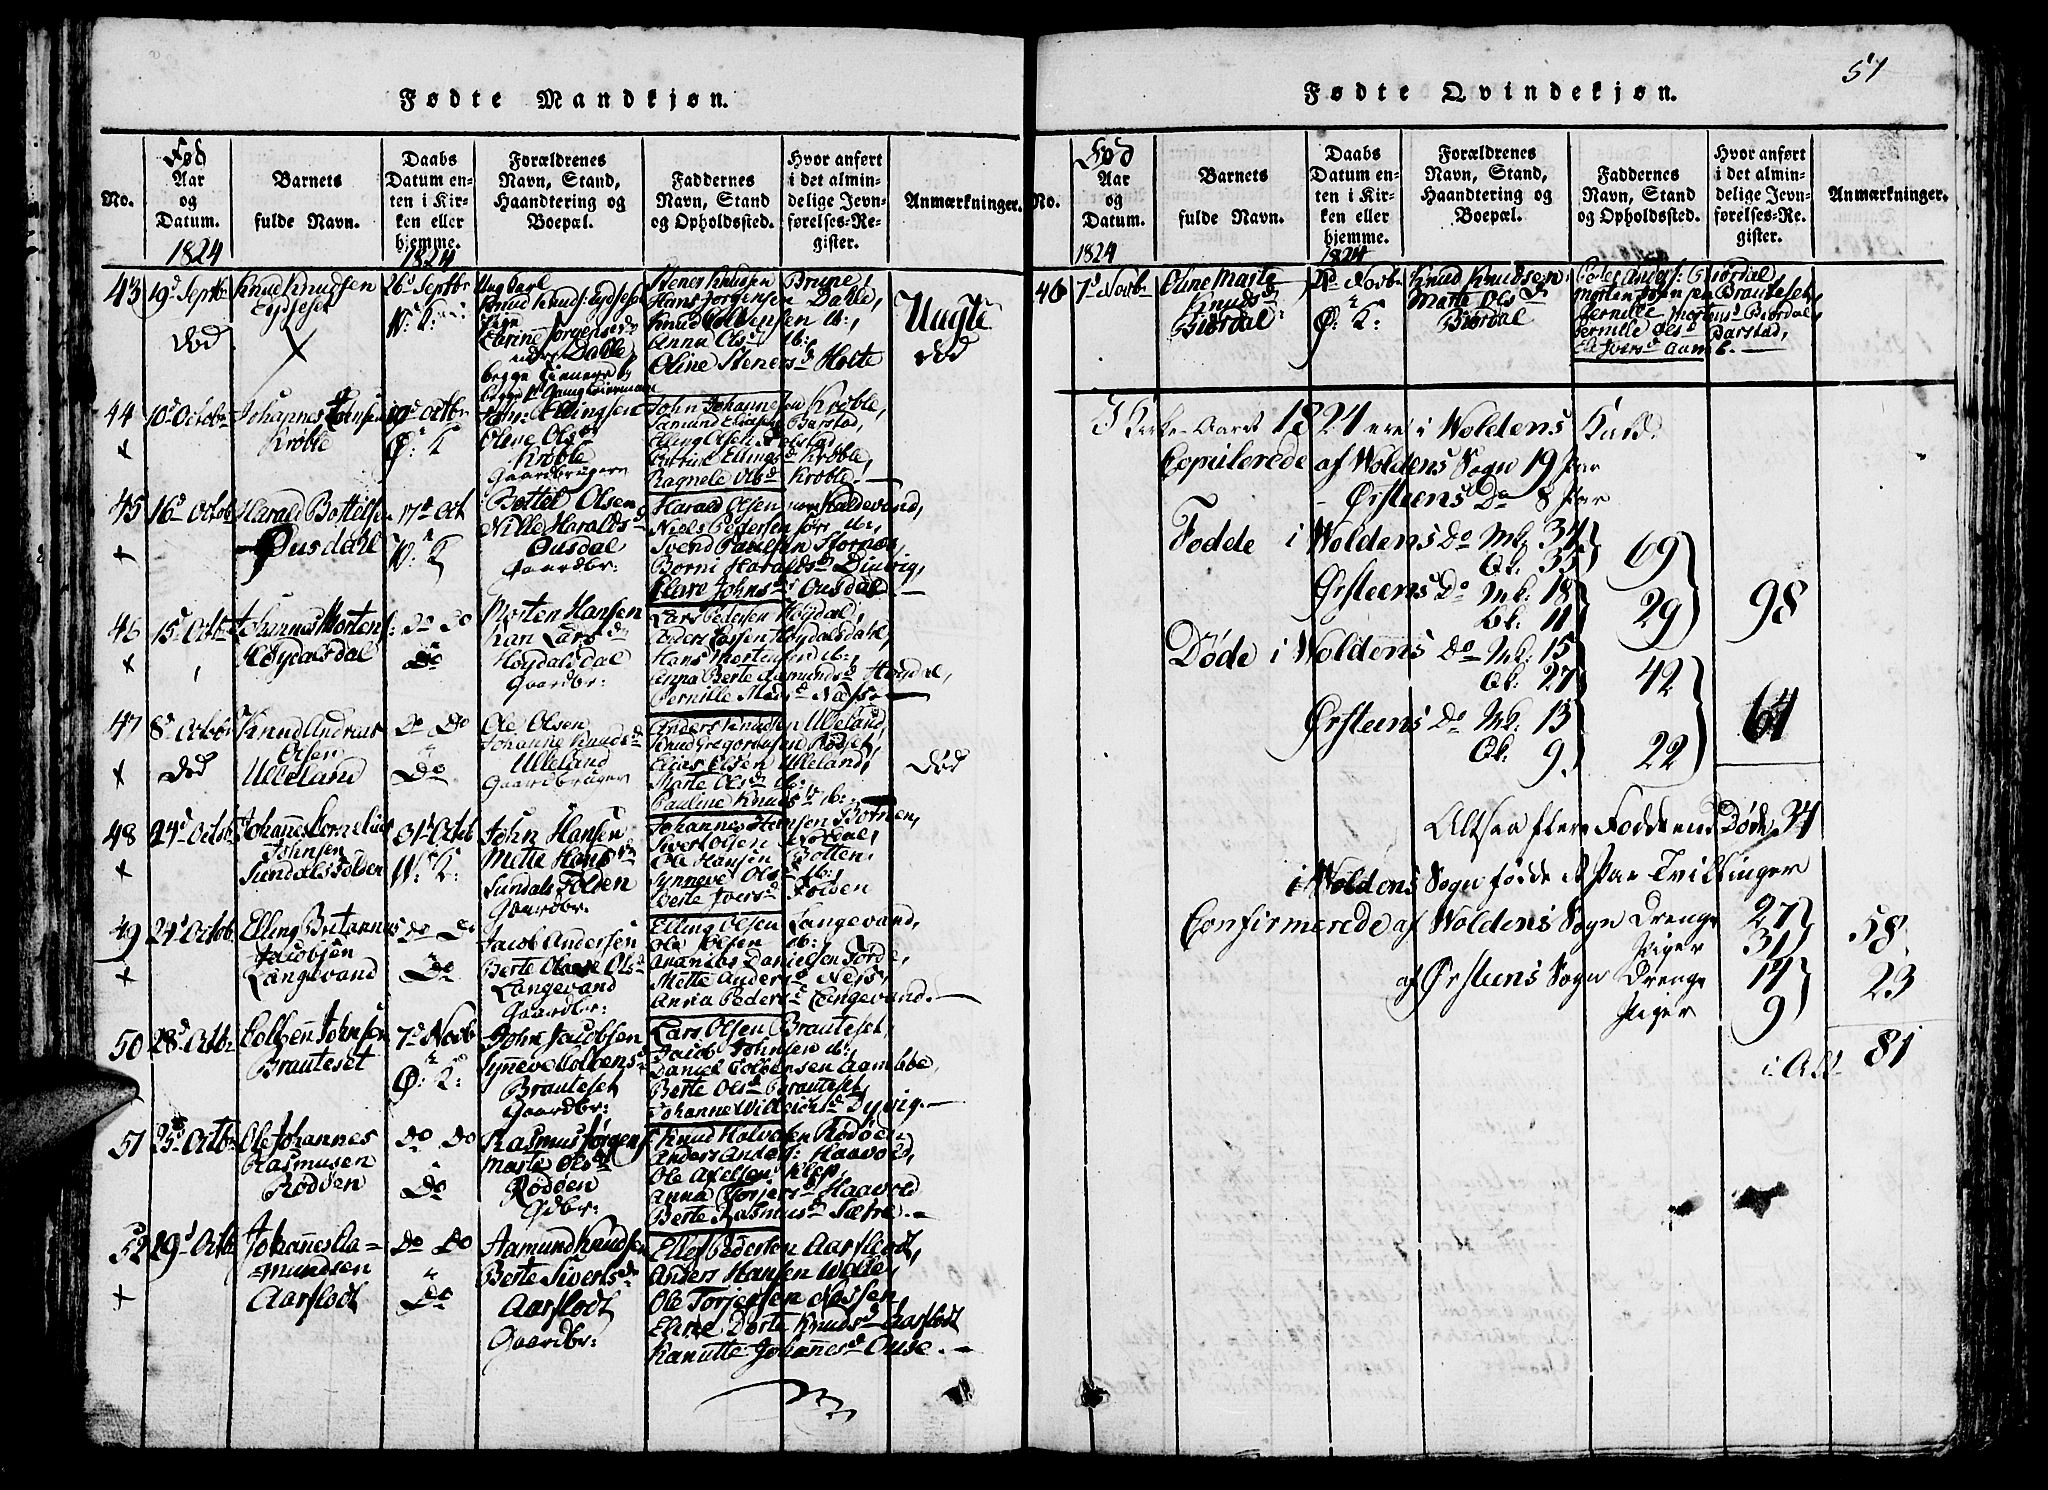 Fødte Mandkjøn.
No.
Fød
Aar
og
Datum.
1824
Barnets
fulde Navn.
Daabs
Datum en-
ten i Kir-
ken eller
hjemme.
1824
Forældrenes
Navn, Stand,
Haandtering og
Boepæl.
Faddernes
Navn, Stand
og Opholdssted.
Hvor anført
i det almin-
delige Jevn-
førelses-Re-
gister.
Anmærkninger.
43
19d Septbr
død
Knud Knudsen
Eydseset
26d Septbr
W: K:
Ungkarl
Knud Knuds: Eydseset
Pige
Carine Jørgensd
Dahle
begge
Stener Knudsen Brune,
Hans Jørgensen Dahle,
Knud Colbensen ib:,
Anna Olsd ib:
Oline Stenersd Holte
Uægte
død
44
10d Octobr
Johannes Johnsen
Krøble
Octbr
Ø: K
John Ellingsen
Olene Olsd
Krøble
Gaardbrugere
John Johannesen Krøble,
Aamund Eliasen Barstad,
Elling Olsen
Ellingsd Krøble,
Ragnele Olsd Krøble.
45
16d Octob
Harald Bottelsen
Ousdahl
17d Oct
W: K
Bottel Olsen
Nille Haraldsd
Ousdal
Gaardbr:
Harald Olsen Kaldevand,
Niels Pedersen ib:,
Svend Paulsen Hornæs,
Borni Haraldsd Dinvig,
Clare Johnsd Ousdal
46
15d Octbr
Johannes Mortens:
Høydalsdal
Do Do
Do
Morten Hansen
Larsd
Høydalsdal
Gaardbr:
Lars Pedersen Høydal,
Anders Larsen Høydalsdahl,
Hans Mortensen ib:,
Anna Berte Aamundsd Høydal,
Pernille Madsd Næss
47
8d Octobr
død
Knud Andreas
Olsen
Ulleland
Do Do
Do
Ole Olsen
Johanne Knudsd
Ulleland
Gaardbruger
Anders Knudsen Ulleland,
Knud Gregoriusen Rødset,
Elias Olsen Ulleland,
Marte Olsd ib:
Pauline Knudsd ib:
død
48
24d Octob
Johannes Cornelius
Johnsen
Sundals Folden
31d Octob
W: K:
John Hansen
Mette Hansd
Sundals Folden
Gaardbr:
Johannes Hansen Botnen,
Sivert Olsen Nordal,
Ole Hansen Botten,
Synneve Olsd ib:
Berte Iversd Folden
49
24d Octob
Elling Britannus
Jacobsen
Langevand
Do Do
Do
Jacob Andersen
Berte Olsd
Langevand
Gaardbr:
Elling Olsen Langevand,
Ole Olsen ib:
Ananias Danielsen Førde,
Mette Andersd Ness,
Anna Pedersd Langevand.
50
28d Octbr
Colben Johnsen
Brauteset
7d Novb
Ø: K:
John Jacobsen
Synneve Colbensd
Brauteset
Gaardbr:
Lars Olsen Brauteset,
Jacob Johnsen ib:
Daniel Colbensen Aambøe,
Berte Olsd Brauteset,
Johanne Dyvig.
51
25d Octbr
Ole Johannes
Rasmusen
Rødøen
Do Do
Do
Rasmus Jørgens
Marte Olsd
Rødøen
Gdbr:
Knud Halvorsen Rødøen
Anders Anders: Haavold,
Ole Axelsen Klep,
Anna Torjersd Haavold
Berte Rasmusd Sætre.
52
29d Octbr
Johannes Aa=
mundsen
Aarflodt
Do Do
Do
Aamund Knudsen
Berte Sivertsd
Aarflodt
Gaardbr:
Ellef Pedersen Aarflodt,
Anders Hansen Welle,
Ole Torjersen Nossen,
Eline Dorte Knudsd Aarflodt
Kanutte Johannesd Ouse.
51
Fødte Qvindekjøn.
No.
Fød
Aar
og
Datum.
1824
Barnets
fulde Navn.
Daabs
Datum en-
ten i Kir-
ken eller
hjemme.
1824
Forældrenes
Navn, Stand,
Haandtering og
Boepæl.
Faddernes
Navn, Stand
og Opholdssted.
Hvor anført
i det almin-
delige Jevn-
førelses-Re-
gister.
Anmærkninger.
46
7d Novbr
Eline Marte
Knudsd
Biørdal
Novbr
Ø: K:
Knud Knudsen
Marte Olsd
Biørdal
Biørdal
Brauteset
Pernille Mortensd Biørdal,
Pernille Olsd Barstad,
I Kirke-Aaret 1824 ere i Woldens Kald
Copulerede af Woldens Sogn 19 Par
- Ørsteens Do 8 Par
Fødde i Woldens Do Mk: 34
Qk: 35
69
Ørsteens Do Mk: 18
Qk: 11
29
98
Døde i Woldens Do Mk: 15
Qk: 27
42
Ørsteens Do Mk: 13
Qk: 9.
22
64
Altsaa flere Fødde end Døde 34
i Woldens Sogn fødde Par Tvillinger
Confirmerede af Woldens Sogn Drenge 27
Piger 31
58
af Ørsteens Sogn Drenge 14
Piger 9
23
i Alt 81